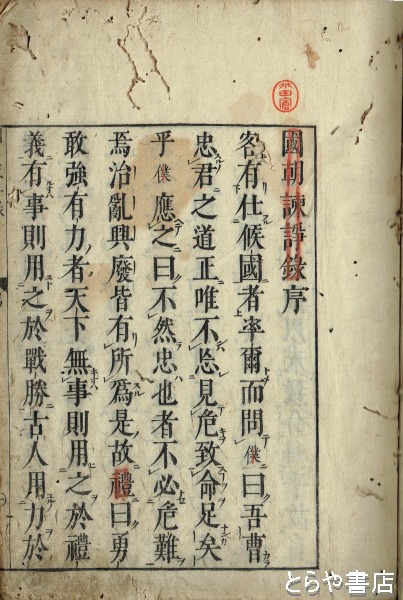 國朝諫諍錄序
客有仕候國者率爾而問僕曰吾曹
忠君之道正唯不忩見危致命足矣
乎僕應之曰不然忠也者不必危難
焉治亂興廢皆有所爲是故禮曰勇
敢強有力者天下無事則用之於禮
義有事則用之於戰勝古人用力於
とらや書店